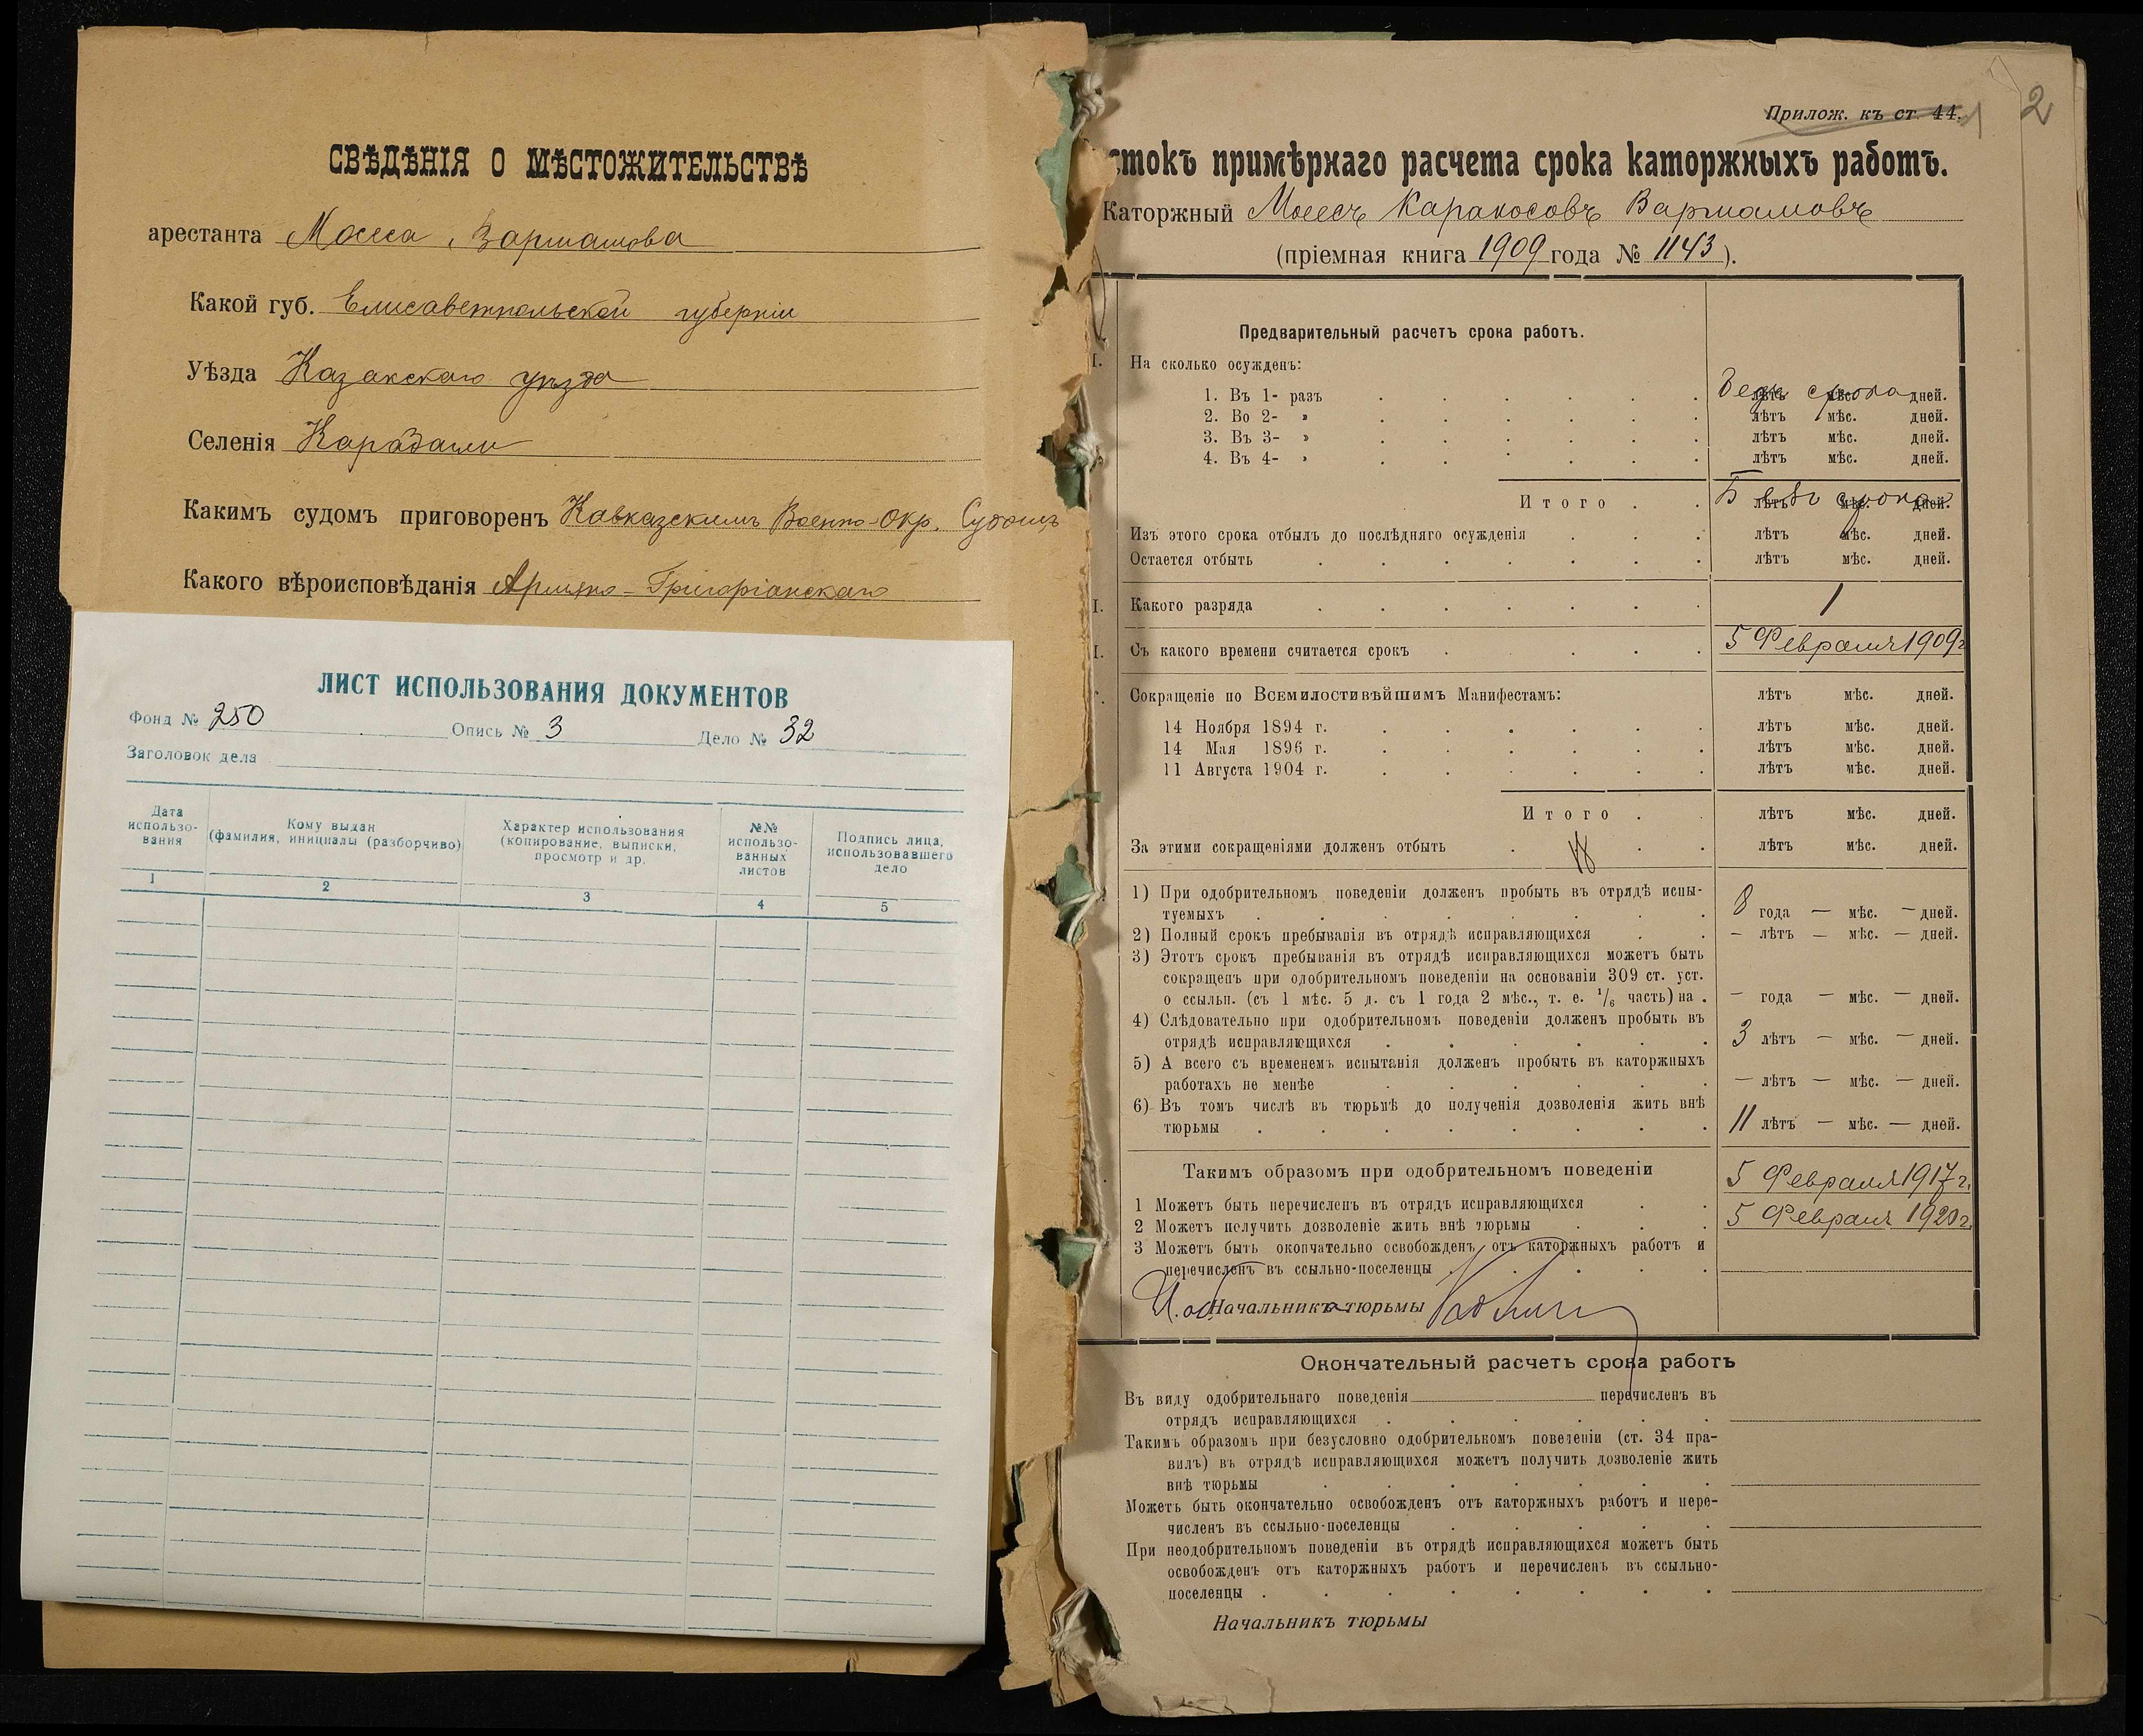 СВѢДѢНІЯ О МѢСТОЖИТЕЛЬСТВѢ
арестанта Мосеса Вартамова
Какой губ. Елисаветпольской губерніи
Уѣзда Казахскаго уѣзда
Селенія
Какимъ судомъ приговоренъ Кавказскимъ Военно-Окр. Судомъ
Какого вѣроисповѣданія Армяно-Григоріанскаго
ЛИСТ ИСПОЛЬЗОВАНИЯ ДОКУМЕНТОВ
Фонд № 250 Опись № 3 Дело № 32
Заголовок дела
Дата использо-вания
Кому выдан (фамилия, инициалы (разборчиво)
Характер использования (копирование, выписки, просмотр и др.
№№ использо-ванных листов
Подпись лица, использовавшего дело
1 2 3 4 5
2
Прилож. къ ст. 44.
стокъ примѣрнаго расчета срока каторжныхъ работъ.
Каторжный Мосесъ Каракосовъ Вартамовъ
(пріемная книга 1909 года № 1143).
Предварительный расчетъ срока работъ.
I. На сколько осужденъ:
1. Въ 1- разъ Безъ срока лѣтъ мѣс. дней.
2. Во 2- » лѣтъ мѣс. дней.
3. Въ 3- » лѣтъ мѣс. дней.
4. Въ 4- » лѣтъ мѣс. дней.
Итого Безъ срока лѣтъ мѣс. дней.
Изъ этого срока отбылъ до послѣдняго осужденія лѣтъ мѣс. дней.
Остается отбыть лѣтъ мѣс. дней.
I. Какого разряда 1
I. Съ какого времени считается срокъ 5 Февраля 1909 г
Сокращеніе по Всемилостивѣйшимъ Манифестамъ: лѣтъ мѣс. дней.
14 Ноября 1894 г. лѣтъ мѣс. дней.
14 Мая 1896 г. лѣтъ мѣс. дней.
11 Августа 1904 г. лѣтъ мѣс. дней.
Итого лѣтъ мѣс. дней.
За этими сокращеніями долженъ отбыть лѣтъ мѣс. дней.
1) При одобрительномъ поведеніи долженъ пробыть въ отрядѣ испы-
туемыхъ 8 года — мѣс. — дней.
2) Полный срокъ пребыванія въ отрядѣ исправляющихся — лѣтъ — мѣс. — дней.
3) Этотъ срокъ пребыванія въ отрядѣ исправляющихся можетъ быть
сокращенъ при одобрительномъ поведеніи на основаніи 309 ст. уст.
о ссыльн. (съ 1 мѣс. 5 д. съ 1 года 2 мѣс., т. е. 1/6 часть) на . — года — мѣс. — дней.
4) Слѣдовательно при одобрительномъ поведеніи долженъ пробыть въ
отрядѣ исправляющихся 3 лѣтъ — мѣс. — дней.
5) А всего съ временемъ испытанія долженъ пробыть въ каторжныхъ
работахъ не менѣе — лѣтъ — мѣс. — дней.
6) Въ томъ числѣ въ тюрьмѣ до полученія дозволенія жить внѣ
тюрьмы 11 лѣтъ — мѣс. — дней.
Такимъ образомъ при одобрительномъ поведеніи
1 Можетъ быть перечисленъ въ отрядъ исправляющихся 5 Февраля 1917 г.
2 Можетъ получить дозволеніе жить внѣ тюрьмы 5 Февраля 1920 г.
3 Можетъ быть окончательно освобожденъ отъ каторжныхъ работъ и
перечисленъ въ ссыльно-поселенцы
И. об. Начальника тюрьмы
Окончательный расчетъ срока работъ
Въ виду одобрительнаго поведенія перечисленъ въ
отрядъ исправляющихся
Такимъ образомъ при безусловно одобрительномъ поведеніи (ст. 34 пра-
вилъ) въ отрядѣ исправляющихся можетъ получить дозволеніе жить
внѣ тюрьмы
Можетъ быть окончательно освобожденъ отъ каторжныхъ работъ и пере-
численъ въ ссыльно-поселенцы
При неодобрительномъ поведеніи въ отрядѣ исправляющихся можетъ быть
освобожденъ отъ каторжныхъ работъ и перечисленъ въ ссыльно-
поселенцы
Начальникъ тюрьмы